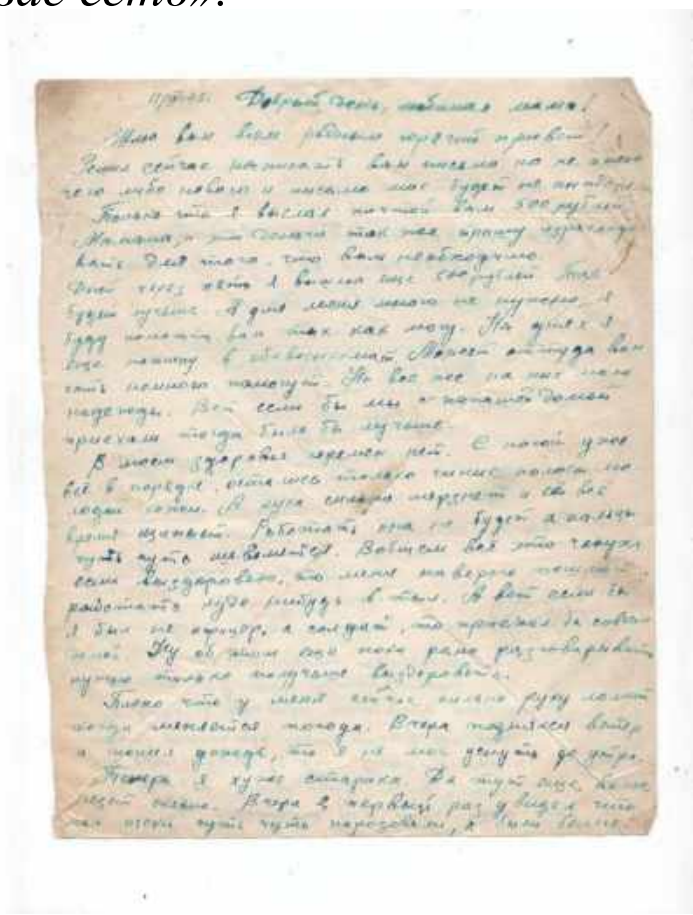 Добрый день, любимая мама!
Шлю вам всем родным горячий привет!
сейчас написать вам письмо но не имею
чего либо нового и письмо мое будет не
Только что я выслал почтой вам 500 рублей
Мамаша, эти деньги так же прошу
вать для того, что вам необходимо.
Дней через пять я вышлю еще 500 рублей
будет лучше. А для меня много не нужно, я
буду помогать вам так как могу. На днях я
еще напишу в облвоенкомат. Может оттуда вам
хоть немного помогут. Но все же на них мало
надежды. Вот если бы мы с папашей домой
приехали тогда было бы лучше.
В моем здоровье перемен нет. С ногой уже
всё в порядке, остались только синие полосы на
А рука сильно мерзнет и её всё
время щипает. Работать она не будет а пальцы
чуть чуть шевелятся. Вобщем всё это чепуха
если выздоровею, то меня наверно пошлют
работать куда нибудь в тыл. А вот если бы
я был не офицер, а солдат, то приехал бы совсем
Ну об этом еще пока рано разговаривать
нужно только получше выздороветь.
Плохо что у меня сейчас сильно руку ломит
когда меняется погода. Вчера поднялся ветер
и пошел дождь, то я не мог уснуть до утра.
Теперь я хуже старика. Да тут еще
Вчера в первый раз увидел что
чуть чуть порозовели, а были